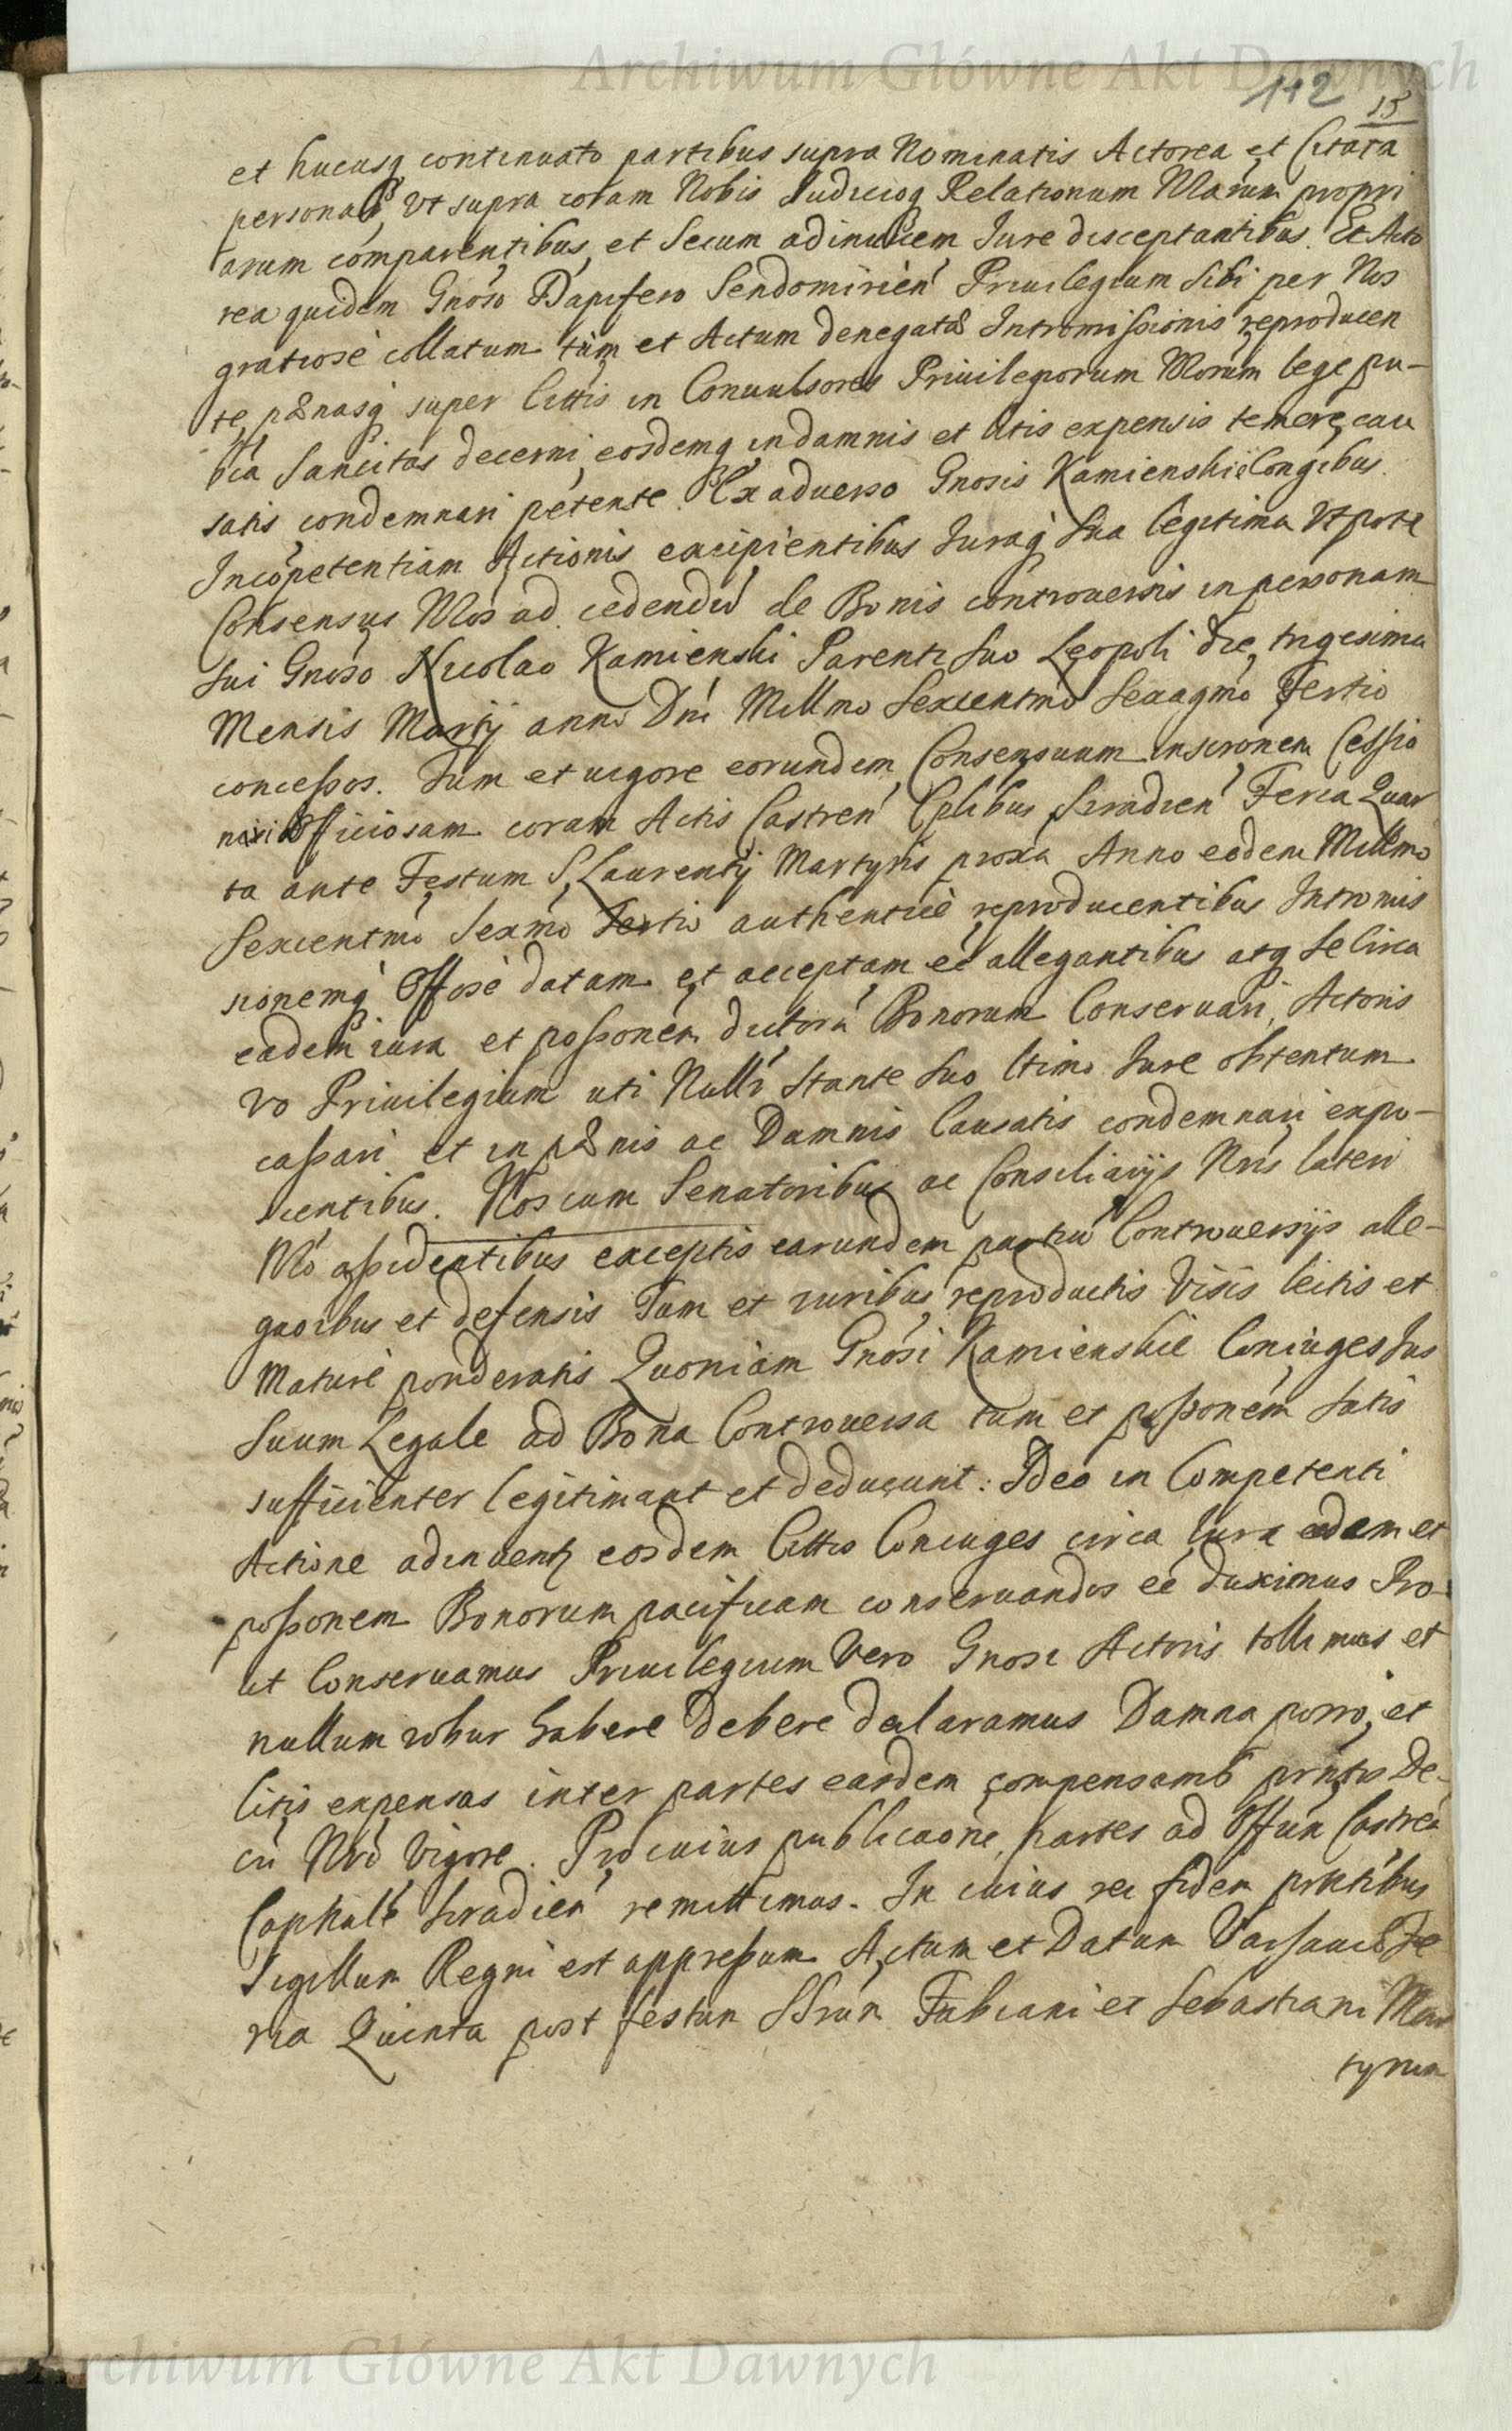 Archiwum Główne Akt Dawnych
112 15
et hucusq continuato partibus supra Nominatis Actorea et Citata
personalr Vt supra coram Nobis Iudicioq Relationum Nrarum propri
arum comparentibus, et Secum adinuicem Iure disceptantibus. Et Acto
rea quidem Gnoso Dapifero Sendomirien Priuilegium Sibi per Nos
gratiose collatum tum et Actum denegatæ Intromissionis reproducen
te, pænasq super Cittis in Conuulsores Priuilegiorum Nrorum lege pu-
blica Sancitas decerni, eosdemq in damnis et litis expensis temere cau
satis condemnari petente. Ex aduerso Gnosis Kamienskie Congibus
Incopetentiam Actionis excipientibus Iuraq Sua legitima Vtpote
Consensus Nros ad cedendu de Bonis controuersis in personam
sui Gnoso Nicolao Kamienski Parenti Suo Leopoli die trigesima
Mensis Martij anno Dni Millmo Sexcentmo Sexagmo Tertio
concessos. Tum et uigore eorundem Consensuum inscronem Cessio
nis officiosam coram Actis Castren Cplibus Siradien Feria Quar
ta ante Festum S Laurentij Martyris proxa Anno eodem Millmo
Sexcentmo Sexmo Tertio authentice reproducentibus Intromis
sionemq Offose datam et acceptam ee allegantibus atq se circa
eadem iura et possonem dictoru Bonorum Conseruari, Actoris
vo Priuilegium uti Nullr stante Suo ltimo Iure obtentum
cassari et in pænis ac Damnis Causatis condemnari expo-
scentibus. Nos cum Senatoribus ac Consiliarijs Nris lateri
Nro assidentibus exceptis earundem partiu Controuersijs alle-
gaoibus et defensis Tum et iuribus reproductis Visis lectis et
Mature ponderatis Quoniam Gnosi Kamienskie Coniuges Ius
Suum Legale ad Bona Controuersa tum et possonem Satis
sufficienter legitimant et deducunt: Ideo in Competenti
Actione adinuenta eosdem Cittos Coniuges circa Iura eadem et
possonem Bonorum pacificam conseruandos ee duximus Pro-
ut Conseruamus Priuilegium Vero Gnosi Actoris tollimus et
nullum robur habere Debere declaramus Damna porro, et
litis expensas inter partes easdem compensams prntis De-
cti Nri Vigore. Pro cuius publicaone partes ad Offum Castren
Capitale Siradien remittimus. In cuius rei fidem prntibus
Sigillum Regni est appressum. Actum et Datum Varsauiæ Fe
ria Quinta post festum SSrum Fabiani et Sebastiani Mar
tyrum
Archiwum Główne Akt Dawnych